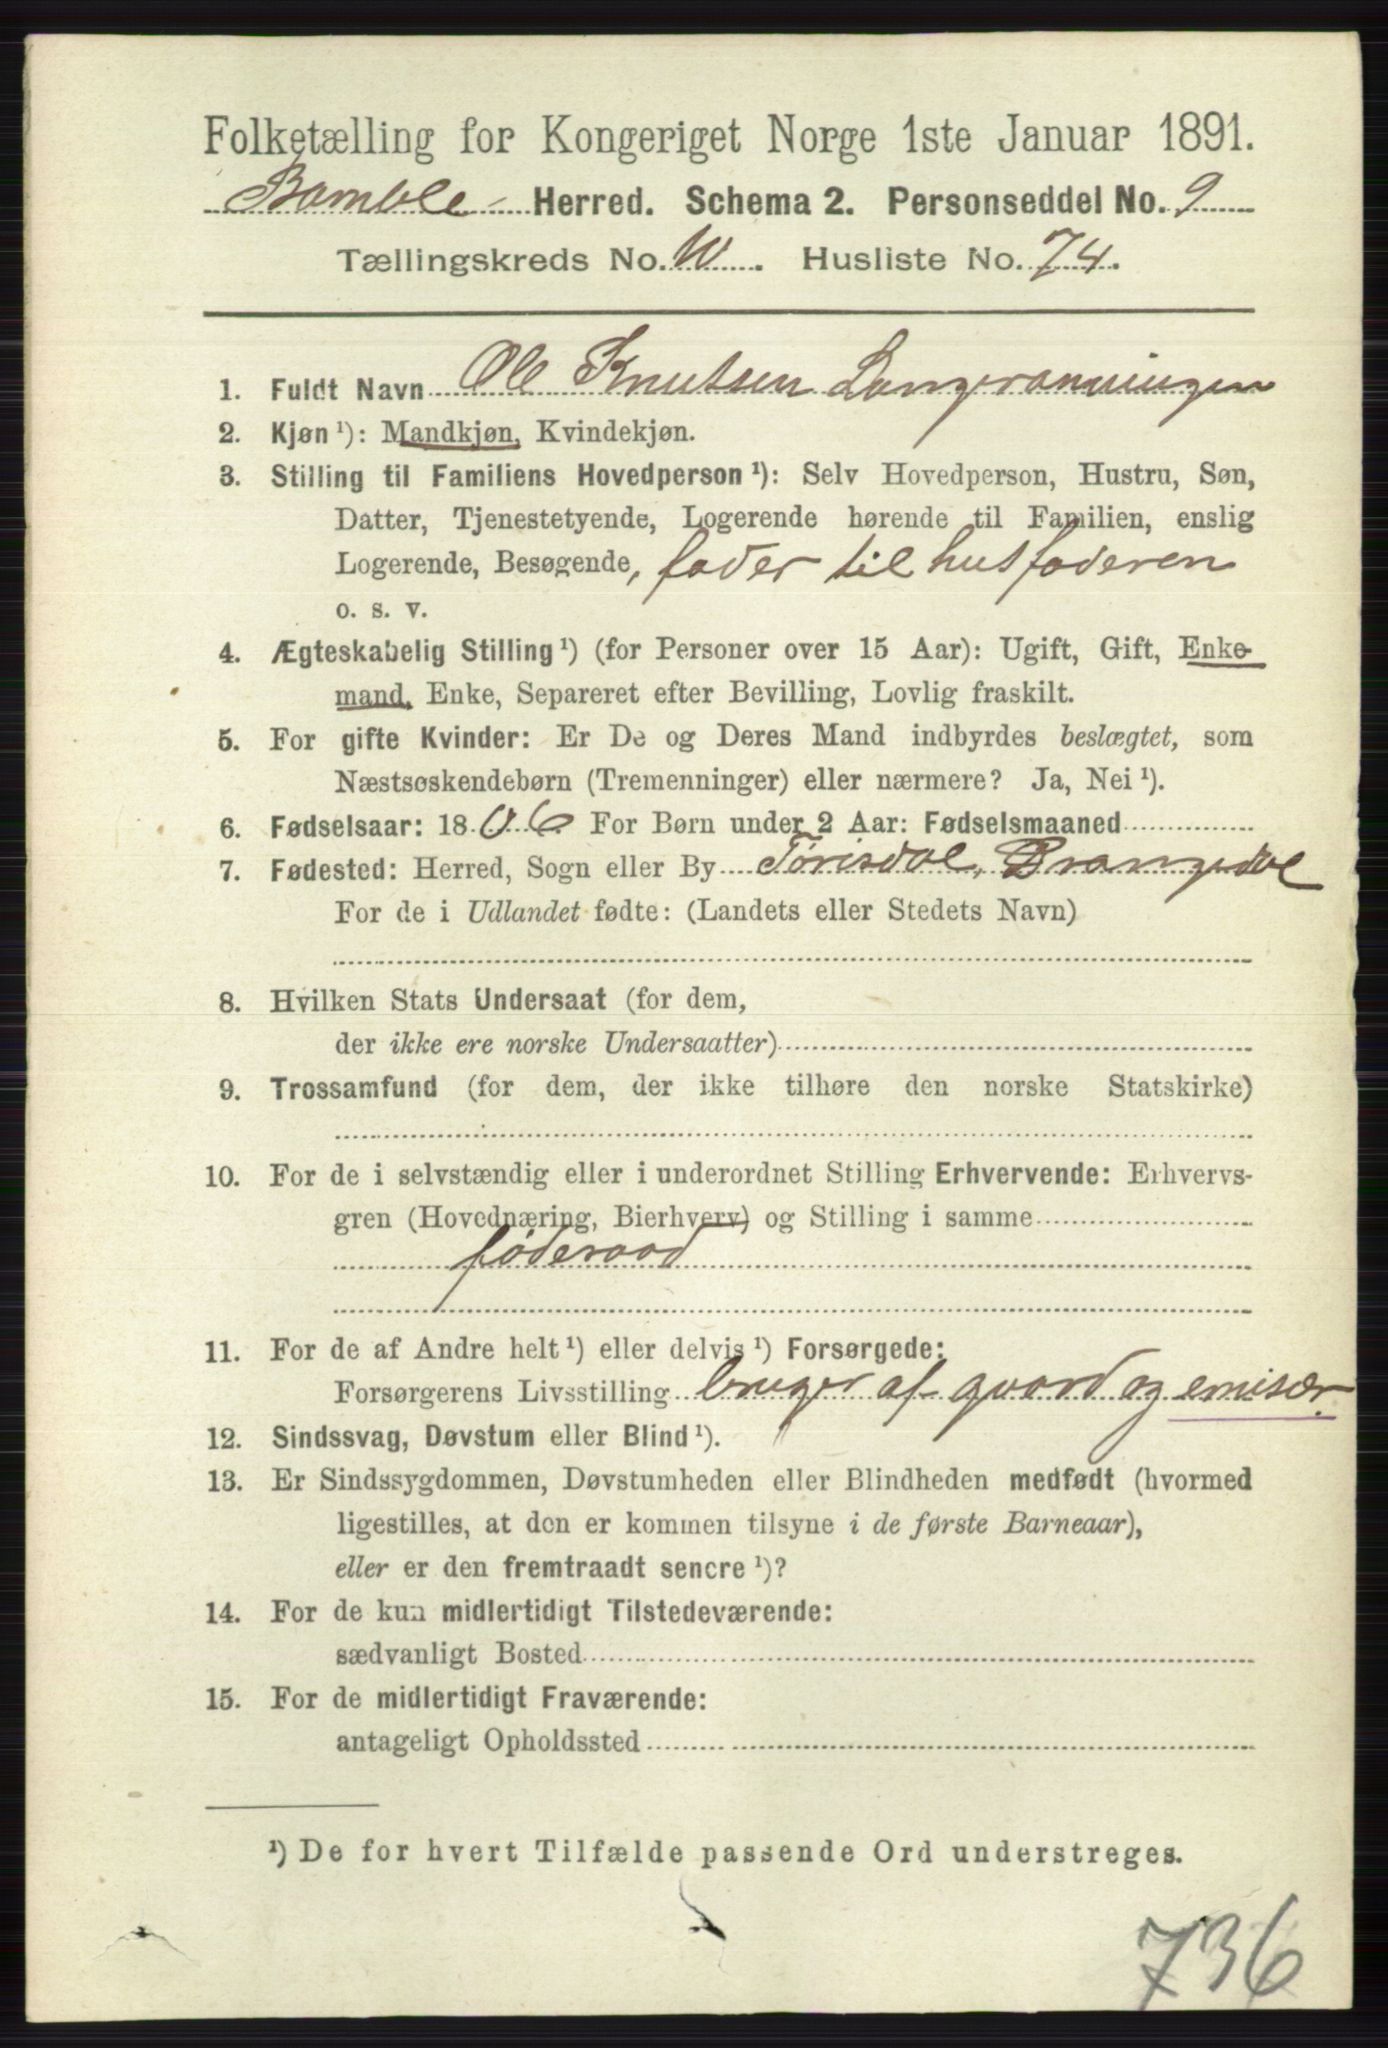 Folketælling for Kongeriget Norge 1ste Januar 1891.
Bamble Herred. Schema 2. Personseddel No. 9
Tællingskreds No. IV. Husliste No. 74.
1. Fuldt Navn Ole Knutsen Langrønningen
2. Kjøn ¹): Mandkjøn, Kvindekjøn.
3. Stilling til Familiens Hovedperson ¹): Selv Hovedperson, Hustru, Søn,
Datter, Tjenestetyende, Logerende hørende til Familien, enslig
Logerende, Besøgende, fader til husfaderen
o. s. v.
4. Ægteskabelig Stilling ¹) (for Personer over 15 Aar): Ugift, Gift, Enke-
mand, Enke, Separeret efter Bevilling, Lovlig fraskilt.
5. For gifte Kvinder: Er De og Deres Mand indbyrdes beslægtet, som
Næstsøskendebørn (Tremenninger) eller nærmere? Ja, Nei ¹).
6. Fødselsaar: 1806 For Børn under 2 Aar: Fødselsmaaned
7. Fødested: Herred, Sogn eller By Tørisdal, Drangedal
For de i Udlandet fødte: (Landets eller Stedets Navn)
8. Hvilken Stats Undersaat (for dem,
der ikke ere norske Undersaatter)
9. Trossamfund (for dem, der ikke tilhøre den norske Statskirke)
10. For de i selvstændig eller i underordnet Stilling Erhvervende: Erhvervs-
gren (Hovednæring, Bierhverv) og Stilling i samme
føderaad
11. For de af Andre helt ¹) eller delvis ¹) Forsørgede:
Forsørgerens Livsstilling bruger af gaard og emisær.
12. Sindssvag, Døvstum eller Blind ¹).
13. Er Sindssygdommen, Døvstumheden eller Blindheden medfødt (hvormed
ligestilles, at den er kommen tilsyne i de første Barneaar),
eller er den fremtraadt senere ¹)?
14. For de kun midlertidigt Tilstedeværende:
sædvanligt Bosted
15. For de midlertidigt Fraværende:
antageligt Opholdssted
¹) De for hvert Tilfælde passende Ord understreges.
736